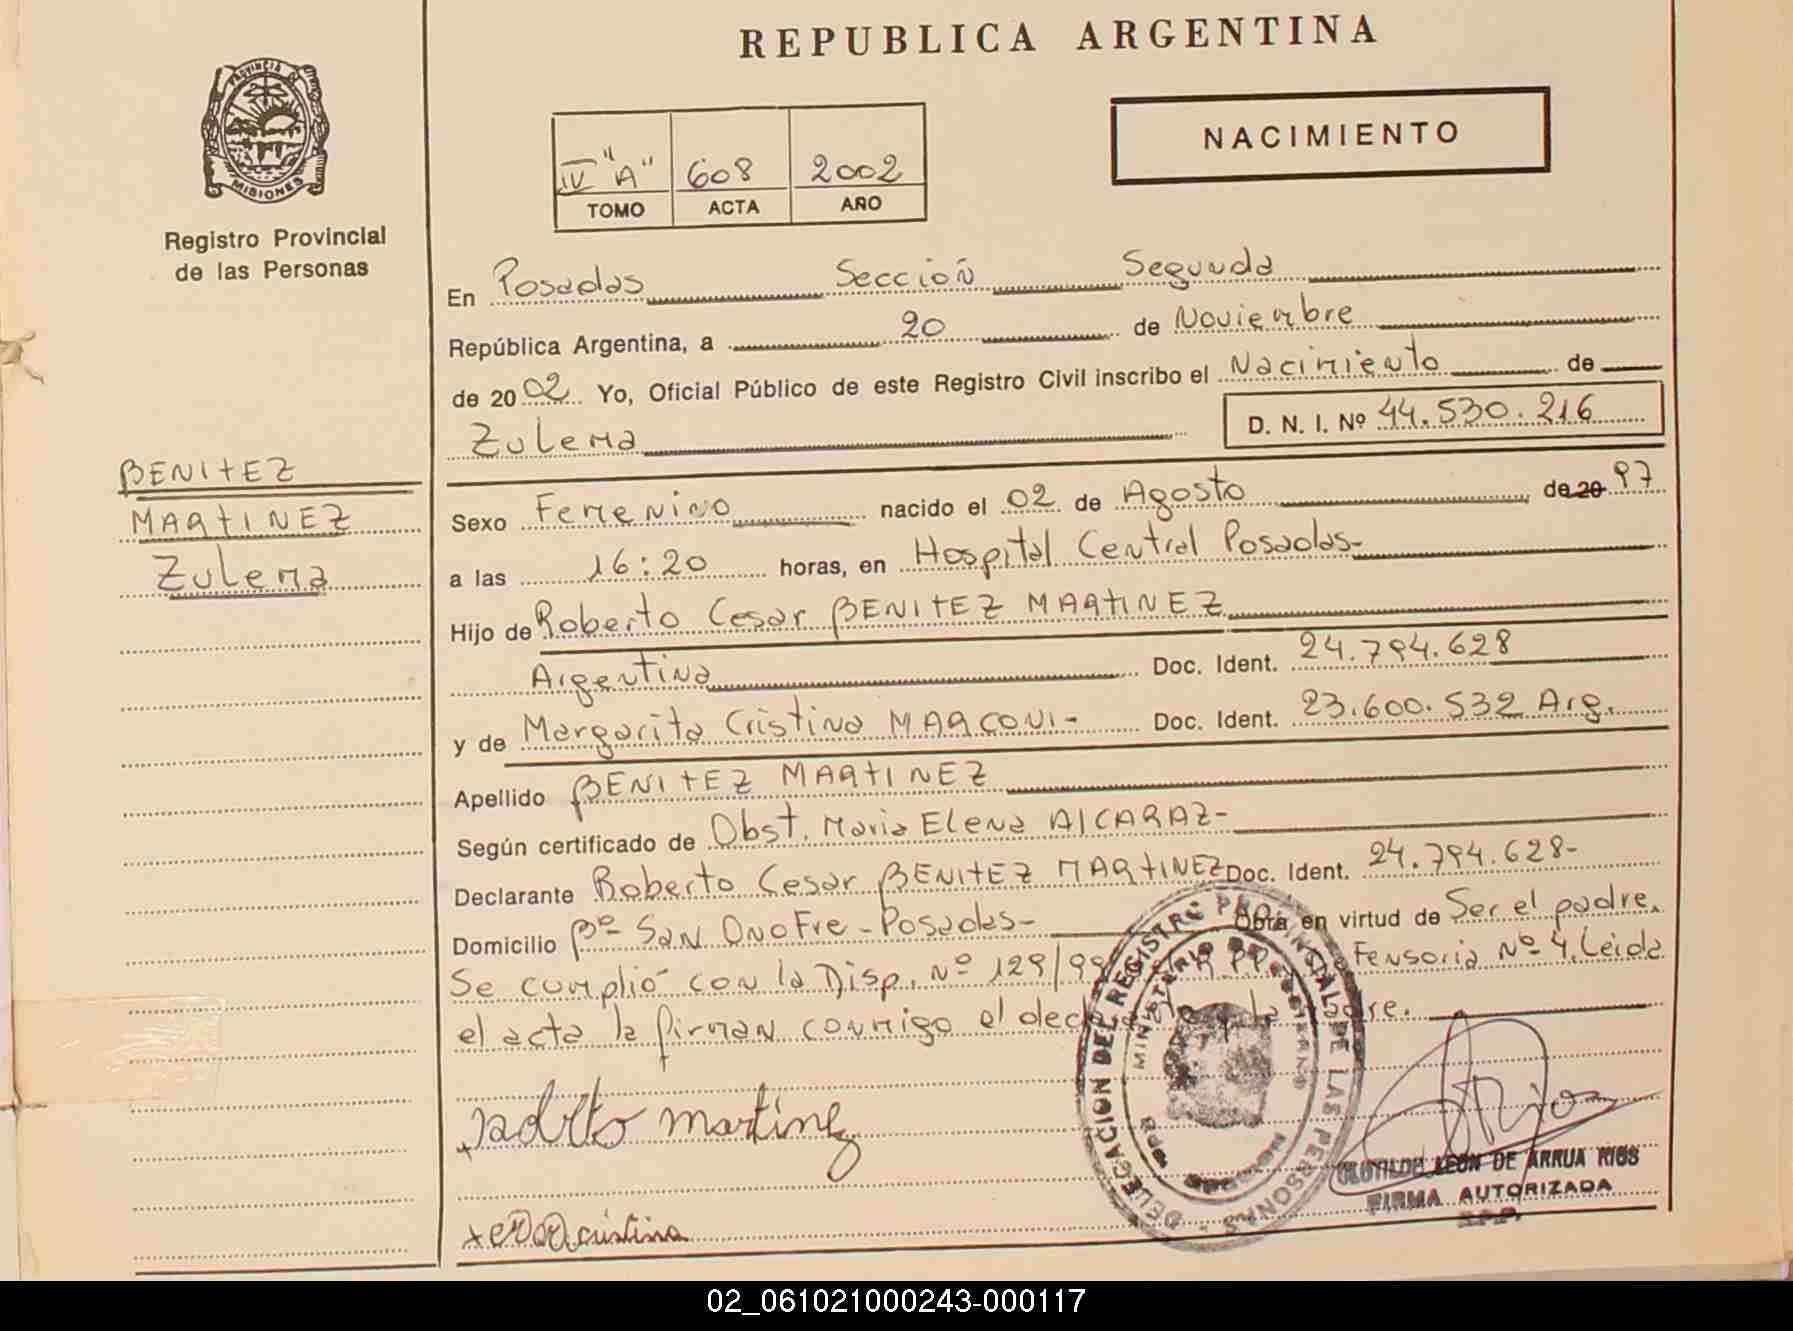 REPUBLICA ARGENTINA
PROVINCIA DE MISIONES
Registro Provincial
de las Personas
IV "A" 608 2002
TOMO ACTA AÑO
NACIMIENTO
En Posadas Sección Segunda
República Argentina, a 20 de Noviembre
de 2002 Yo, Oficial Público de este Registro Civil inscribo el Nacimiento de
Zulema D. N. I. Nº 44.530.216
BENITEZ
MARTINEZ
Zulema
Sexo Femenino nacido el 02 de Agosto de 20 97
a las 16:20 horas, en Hospital Central Posadas-
Hijo de Roberto Cesar BENITEZ MARTINEZ
Argentina Doc. Ident. 24.794.628
y de Margarita Cristina MARCONI- Doc. Ident. 23.600.532 Arg.
Apellido BENITEZ MARTINEZ
Según certificado de Obst. Maria Elena ALCARAZ-
Declarante Roberto Cesar BENITEZ MARTINEZ Doc. Ident. 24.794.628-
Domicilio Bº SAN Onofre - Posadas- Obra en virtud de Ser el padre.
Se cumplió con la Disp. Nº 129/99 Nº 4. Leida
el acta la firman conmigo el declarante y la madre.
martinez
cristina
DELEGACION DEL REGISTRO PROVINCIAL DE LAS PERSONAS
MINISTERIO DE GOBIERNO
CLOTILDE LEON DE ARRUA RIOS
FIRMA AUTORIZADA
R.P.P.
02_061021000243-000117